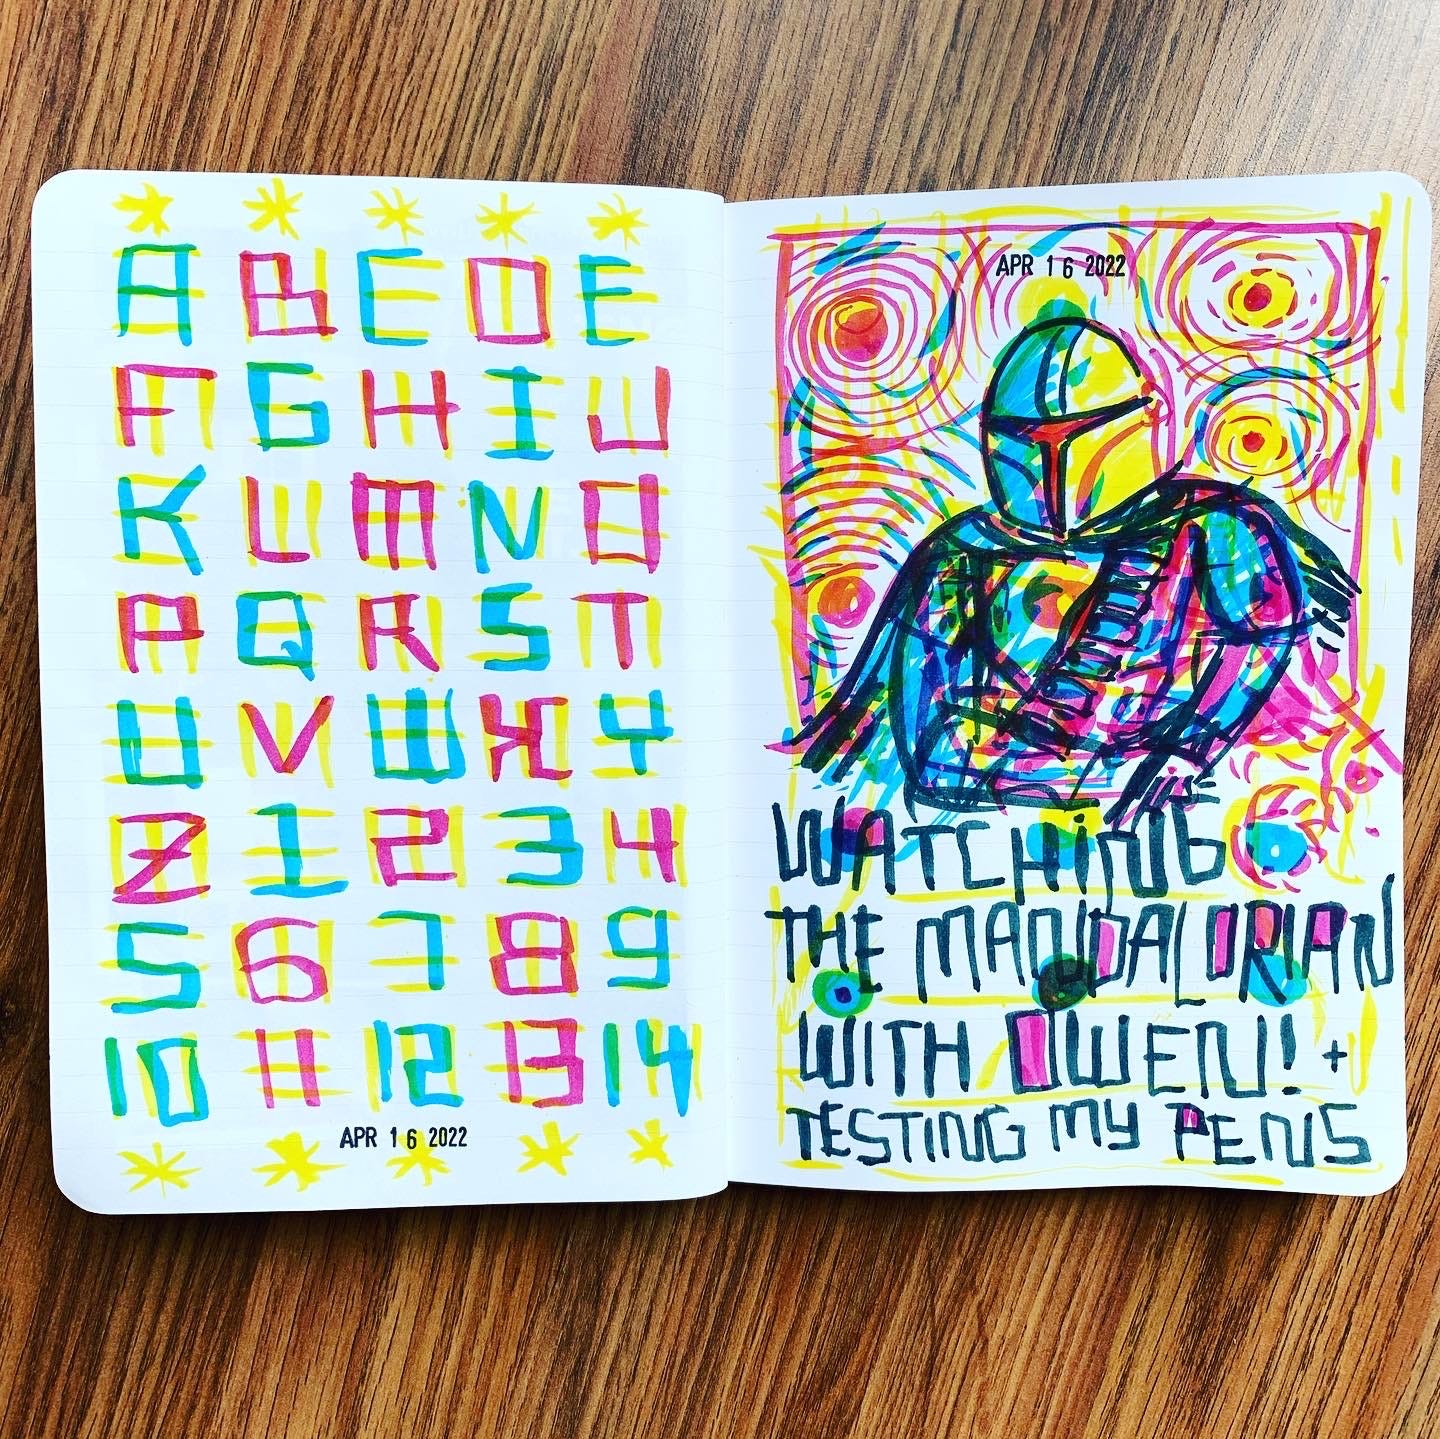 A B C D E
F G H I J
K L M N O
P Q R S T
U V W X Y
Z 1 2 3 4
5 6 7 8 9
10 11 12 13 14
APR 16 2022
APR 16 2022
WATCHiNG
THE MANDALORIAN
WITH OWEN! +
TESTING MY PENS